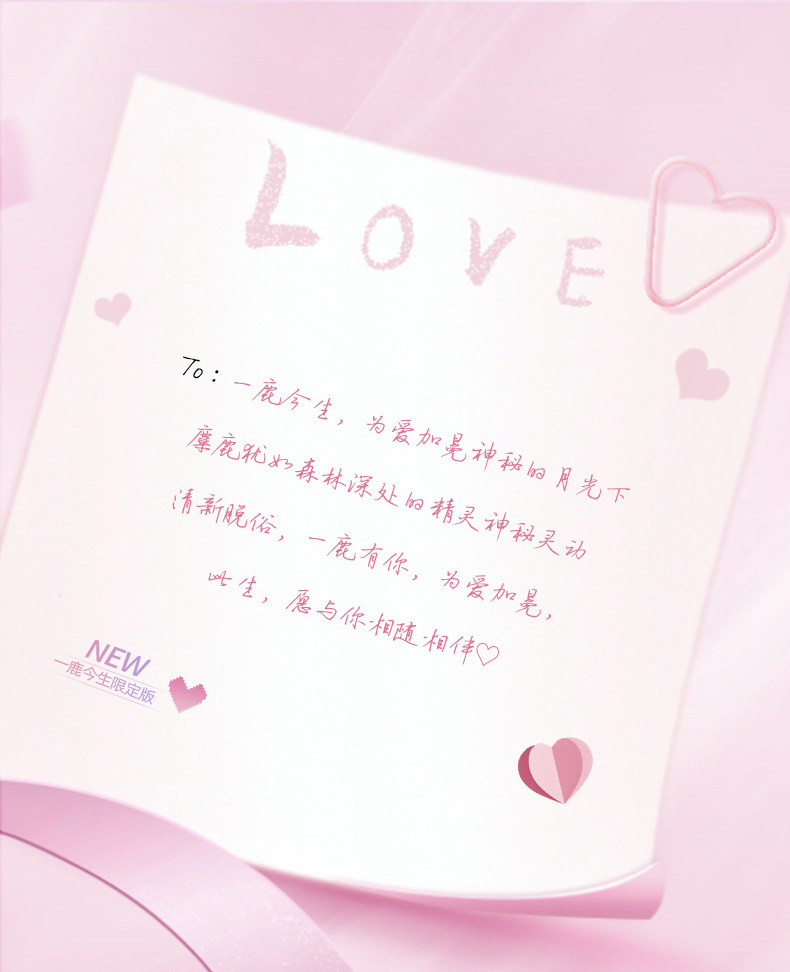 LOVE
To：一鹿今生，为爱加冕神秘的月光下
麋鹿犹如森林深处的精灵神秘灵动
清新脱俗，一鹿有你，为爱加冕，
此生，愿与你相随相伴♡
NEW
一鹿今生限定版